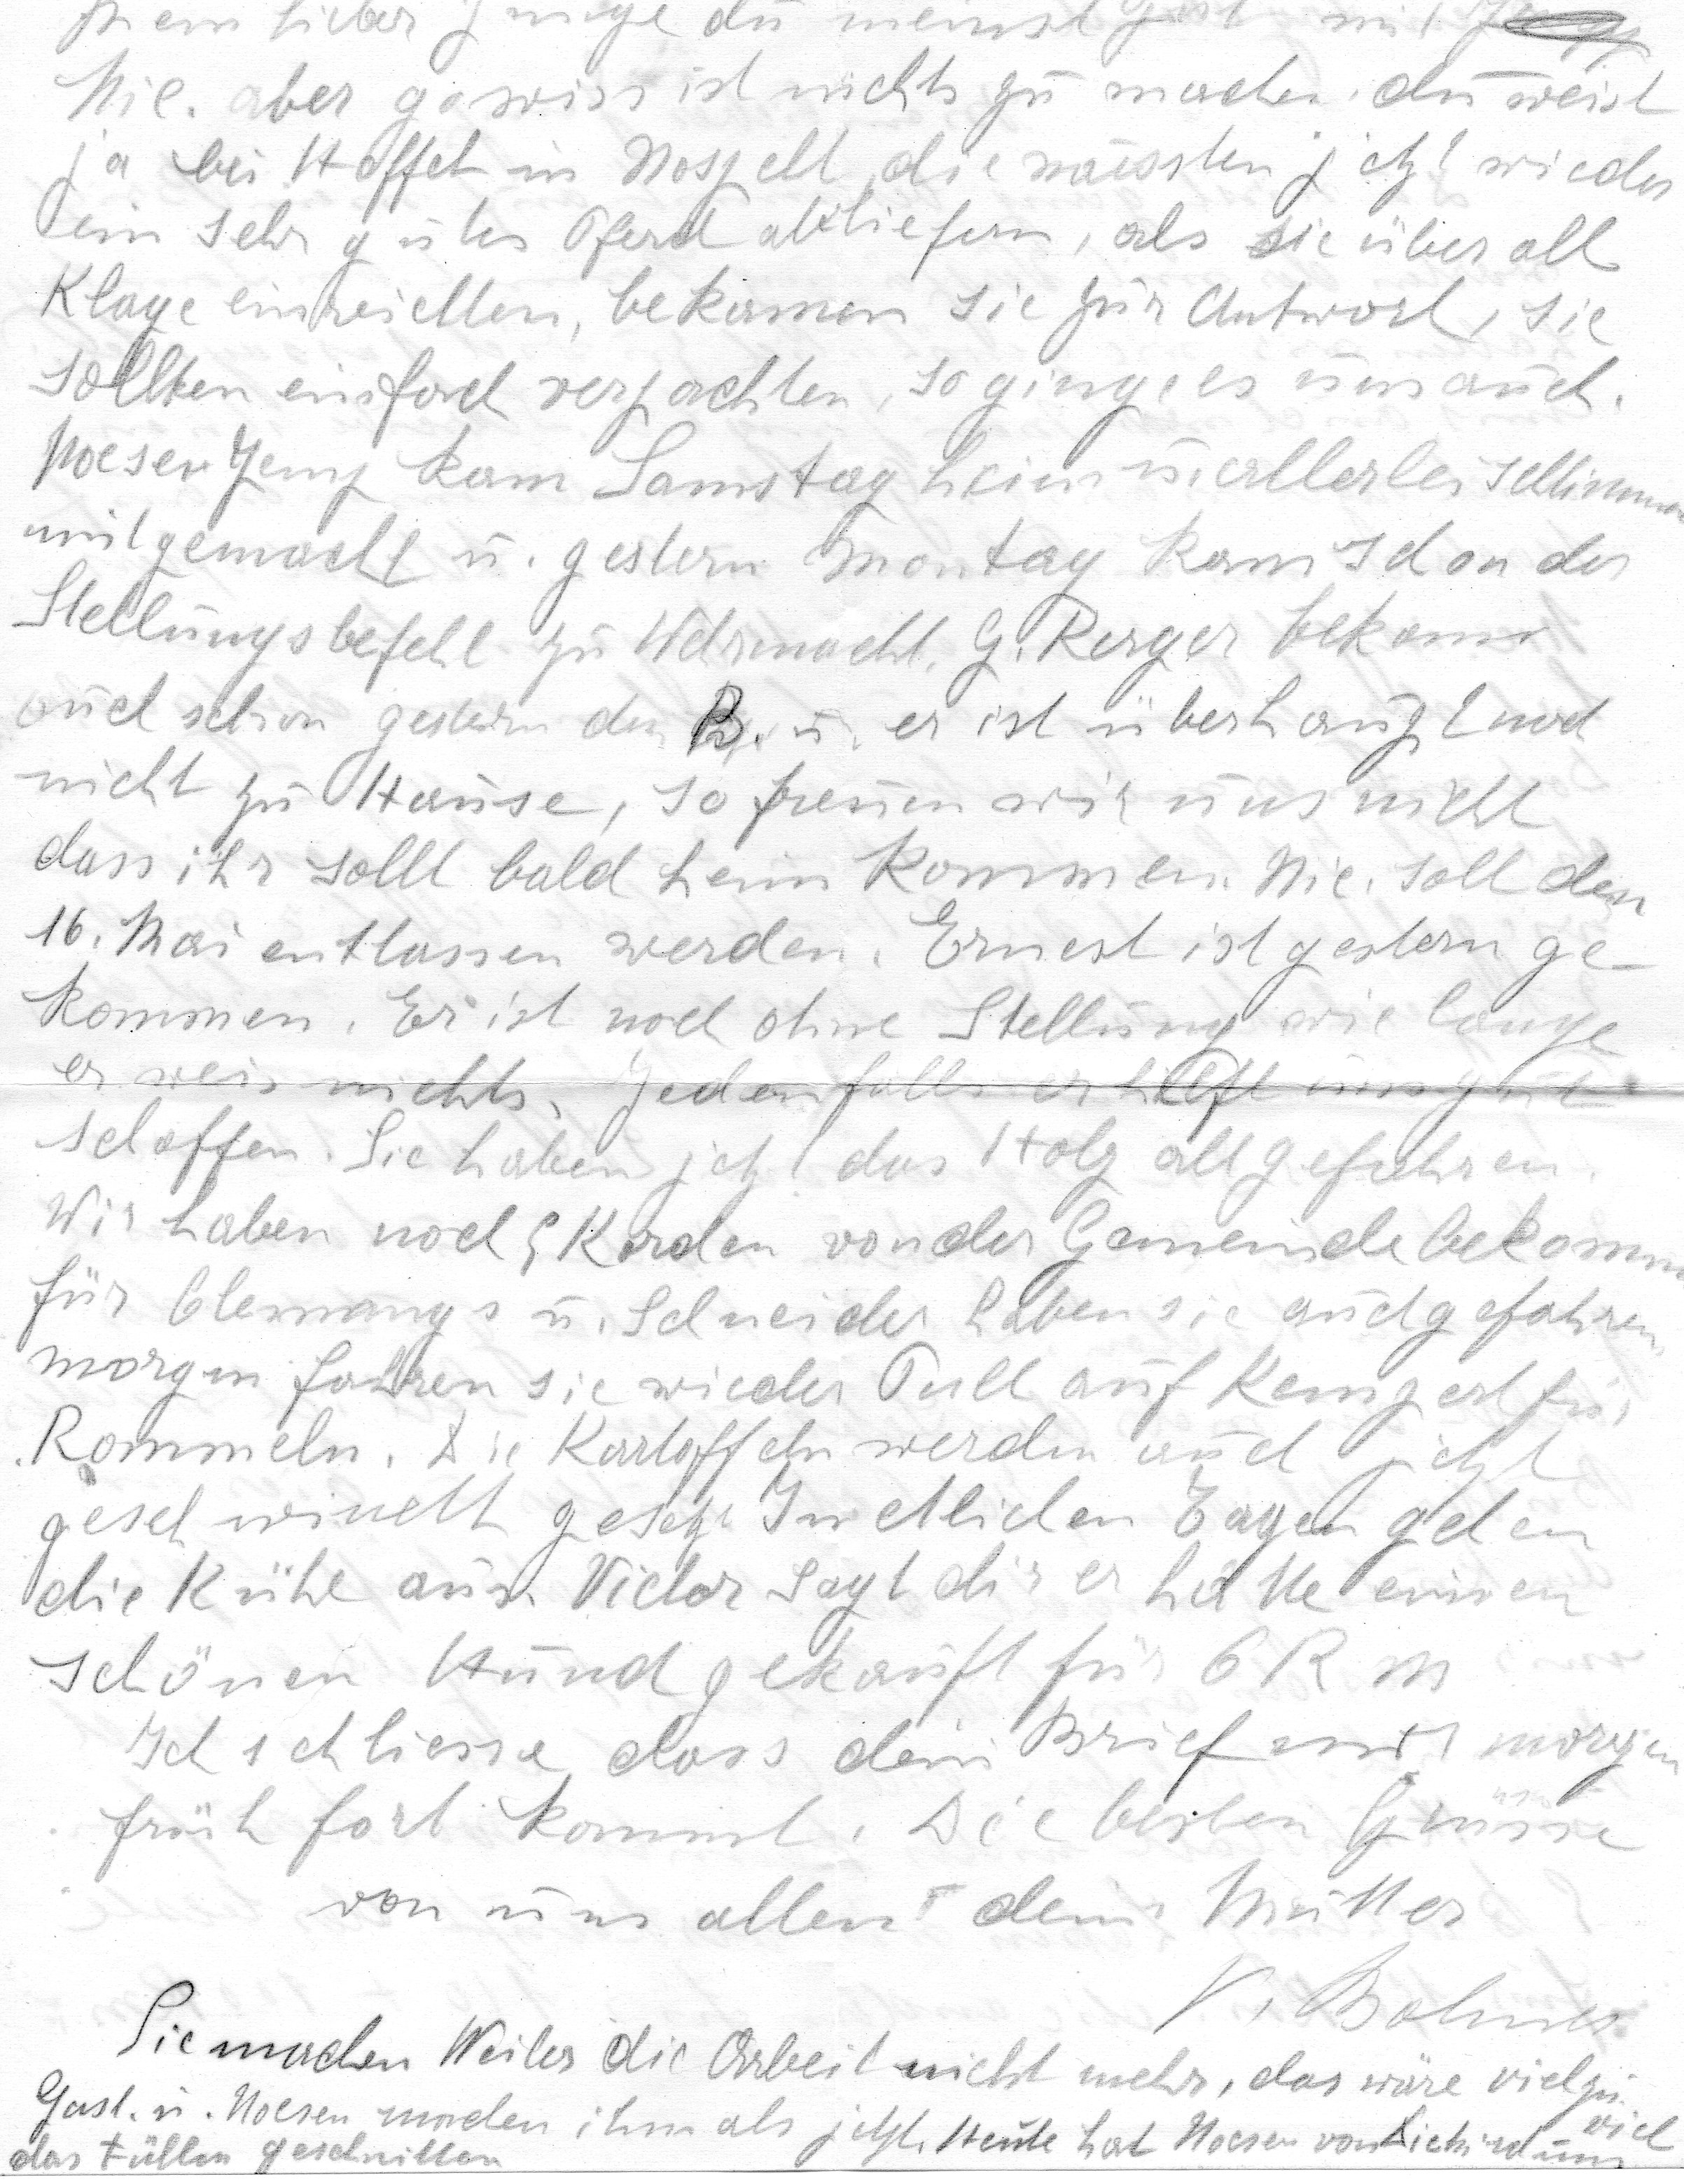 mein lieber Junge du meinst Gast mit
Nic. aber gewiss ist nichts zu machen, du weist
ja bei Hoffet in Nospelt, die mussten jetzt wieder
ein sehr gutes Pferd abliefern, als sie überall
Klage einreichten, bekamen sie zur Antwort, sie
sollten einfach verpachten, so ginge es uns auch.
Noesen Jemp kam Samstag heim u. allerlei schlimmes
mitgemacht u. gestern Montag kam schon der
Stellungsbefehl zu Wehrmacht. G. Kerger bekam
auch schon gestern den B. u. er ist überhaupt noch
nicht zu Hause, so freuen wir uns nicht
dass ihr sollt bald heim kommen. Nic. soll den
16. Mai entlassen werden. Ernest ist gestern ge-
kommen. Er ist noch ohne Stellung wie lange
er weis nichts. Jedenfalls er hilft uns gut
schaffen. Sie haben jetzt das Holz all gefahren.
Wir haben noch Korden von der Gemeinde bekommen
für Clemangs u. Schneider haben sie auch gefahren
morgen fahren sie wieder Pull auf Kempert für
Rommeln. Die Kartoffeln werden auch jetzt
geschwinelt gesetzt In etlichen Tagen gehen
die Kühe aus. Victor sagt dir er hätte einen
schönen Hund gekauft für 6 R M
Ich schliesse dass dein Brief mit morgen
früh fort kommt. Die besten Grüsse
von uns allen deine Mutter
V. Bohmer
Sie machen Weiler die Arbeit nicht mehr, das wäre viel zu
viel
Gast. u. Noesen machen ihm als jetzt. Heute hat Noesen von
das Füllen geschnitten